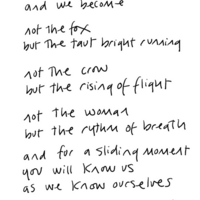 and we become
not the fox
but the taut bright running
not the crow
but the rising of flight
not the woman
but the rythm of breath
and for a sliding moment
you will know us
as we know ourselves